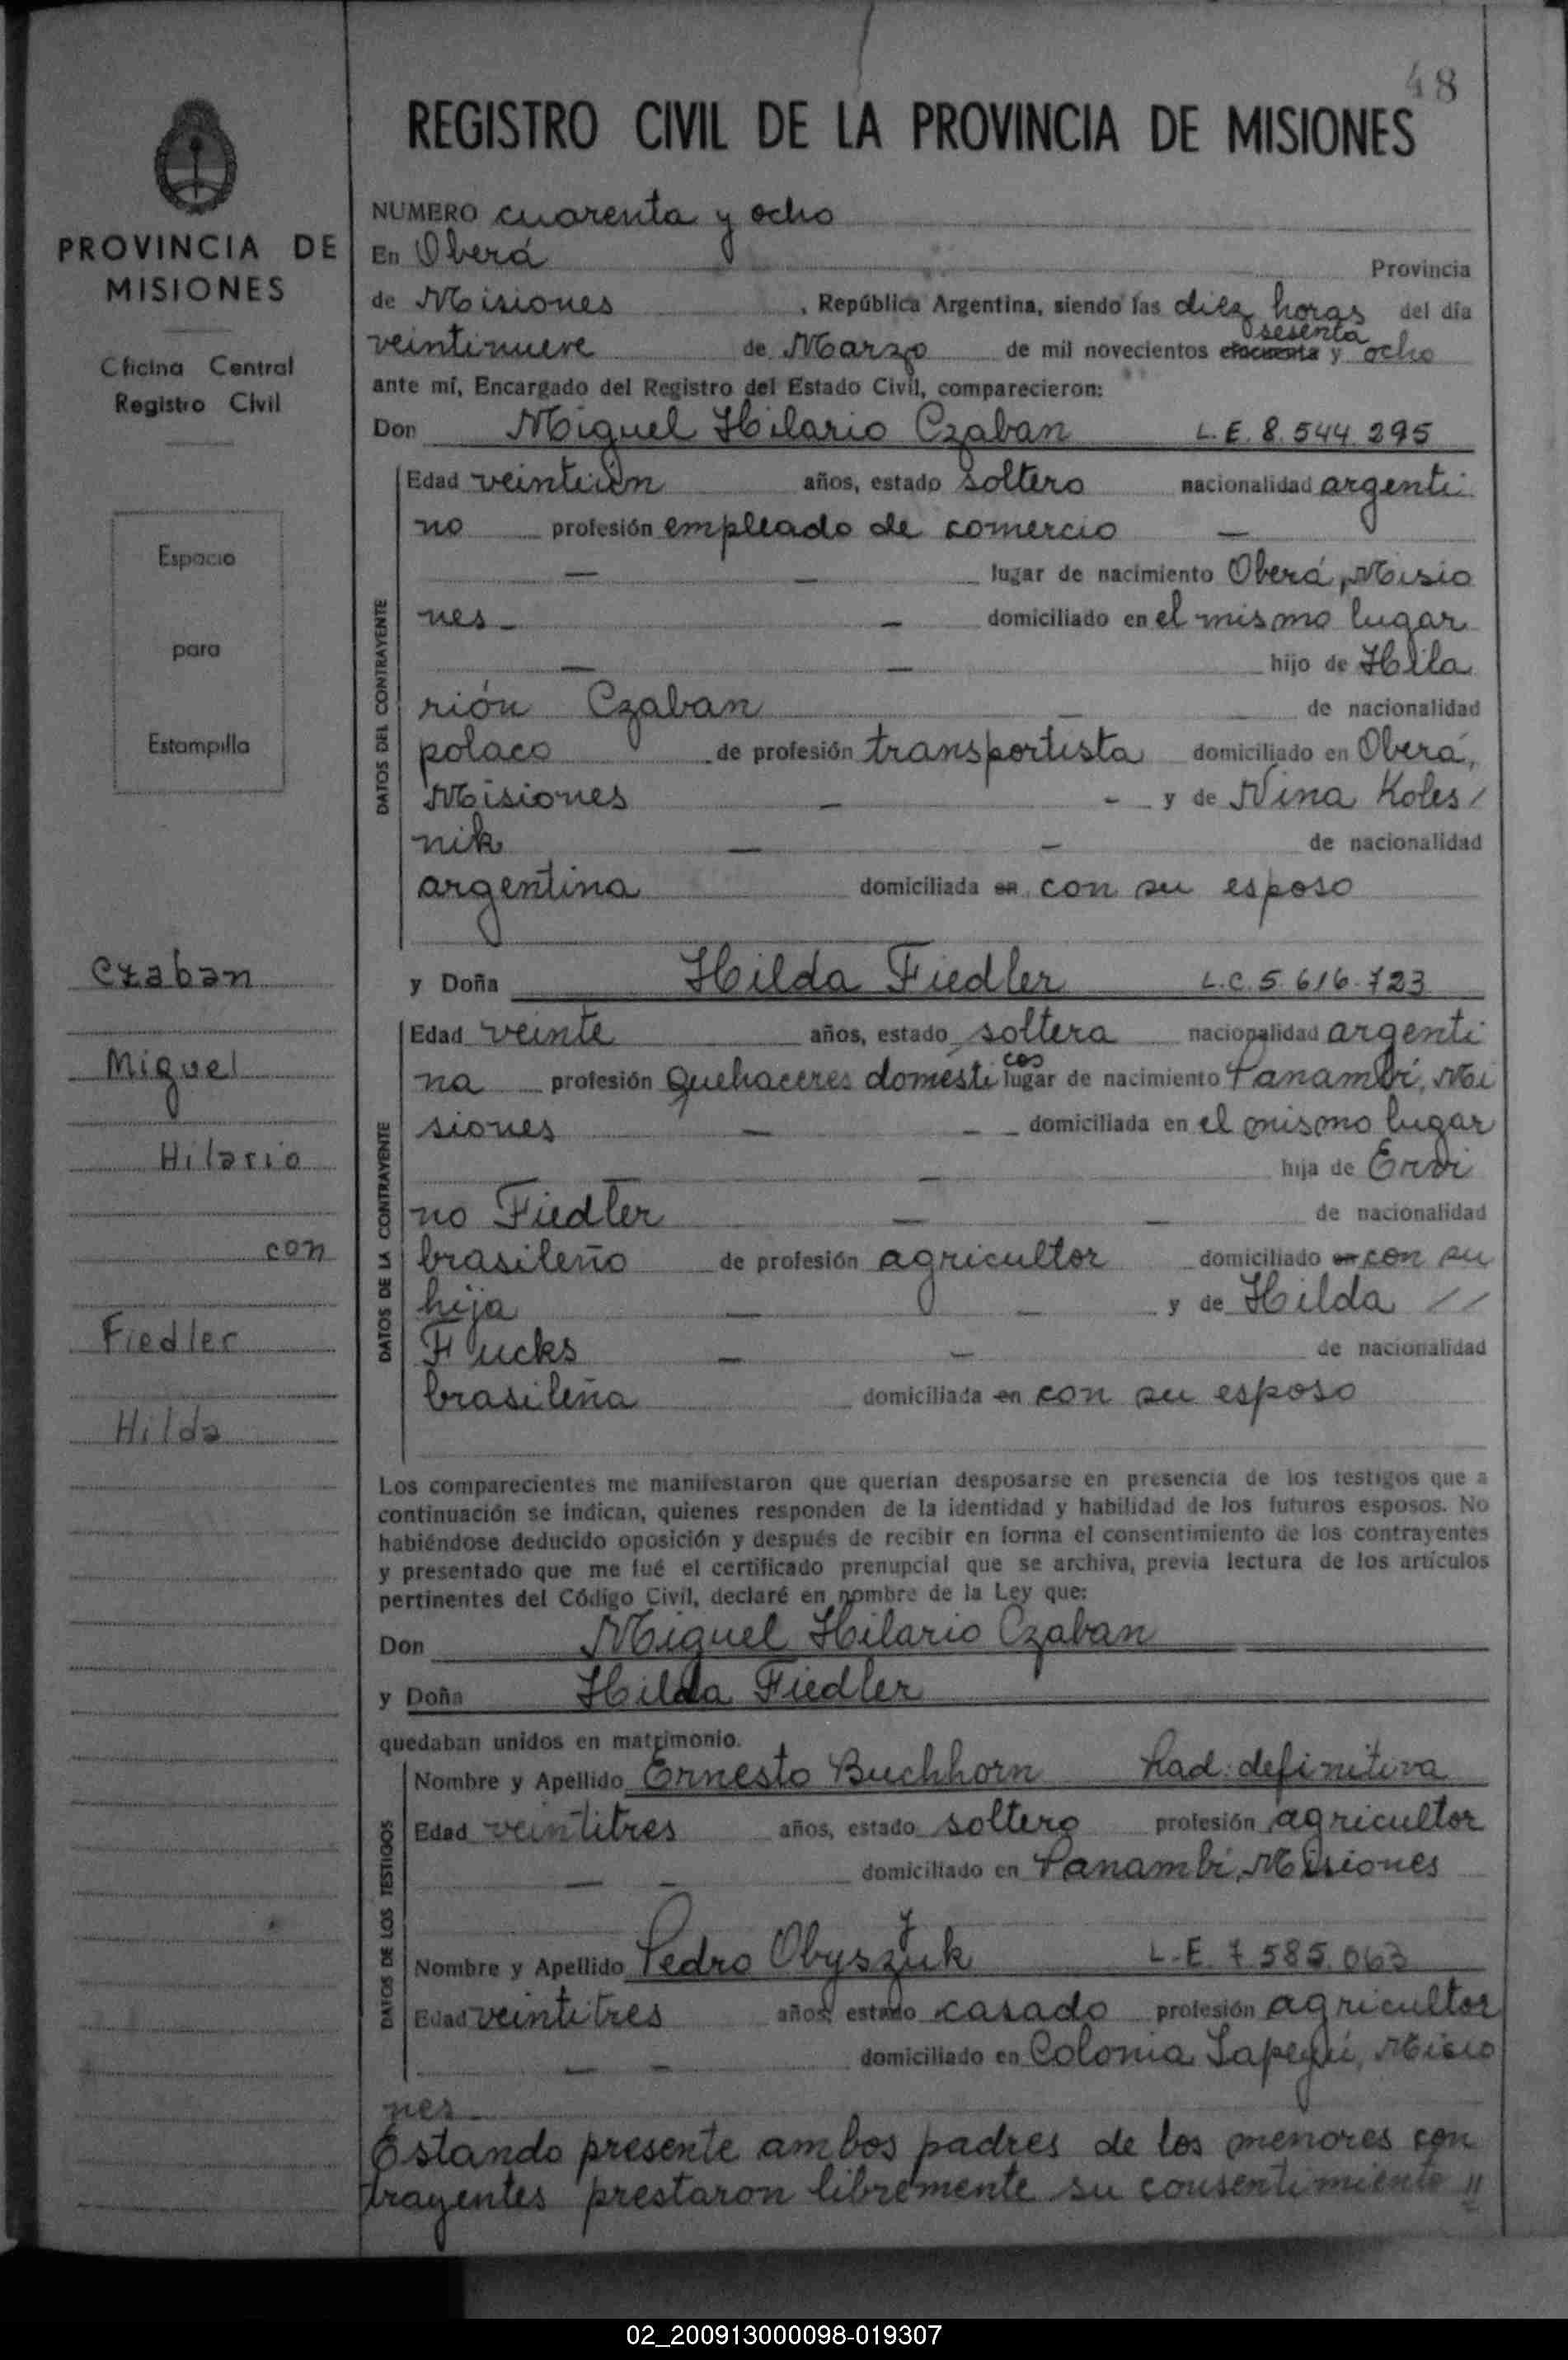 48
REGISTRO CIVIL DE LA PROVINCIA DE MISIONES
PROVINCIA DE
MISIONES
Oficina Central
Registro Civil
Espacio
para
Estampilla
Czaban
Miguel
Hilario
con
Fiedler
Hilda
NUMERO cuarenta y ocho
En Oberá Provincia
de Misiones, República Argentina, siendo las diez horas del día
sesenta
veintinueve de Marzo de mil novecientos cincuenta y ocho
ante mí, Encargado del Registro del Estado Civil, comparecieron:
Don Miguel Hilario Czaban L.E. 8.544.295
DATOS DEL CONTRAYENTE
Edad veintiún años, estado soltero nacionalidad argenti
no profesión empleado de comercio —
— — lugar de nacimiento Oberá, Misio
nes — — domiciliado en el mismo lugar
— — hijo de Hila
rión Czaban — de nacionalidad
polaco de profesión transportista domiciliado en Oberá,
Misiones — - y de Nina Koles/
nik — — de nacionalidad
argentina domiciliada en con su esposo
y Doña Hilda Fiedler L.C. 5.616.723
DATOS DE LA CONTRAYENTE
Edad veinte años, estado soltera nacionalidad argenti
cos
na profesión Quehaceres domésti lugar de nacimiento Panambí, Mi
siones — — domiciliada en el mismo lugar
— hija de Ervi
no Fiedler — — de nacionalidad
brasileño de profesión agricultor domiciliado en con su
hija — — y de Hilda //
Fucks — — de nacionalidad
brasileña domiciliada en con su esposo
Los comparecientes me manifestaron que querían desposarse en presencia de los testigos que a
continuación se indican, quienes responden de la identidad y habilidad de los futuros esposos. No
habiéndose deducido oposición y después de recibir en forma el consentimiento de los contrayentes
y presentado que me fué el certificado prenupcial que se archiva, previa lectura de los artículos
pertinentes del Código Civil, declaré en nombre de la Ley que:
Don Miguel Hilario Czaban
y Doña Hilda Fiedler
quedaban unidos en matrimonio.
DATOS DE LOS TESTIGOS
Nombre y Apellido Ernesto Buchhorn Rad. definitiva
Edad veintitres años, estado soltero profesión agricultor
— — domiciliado en Panambí, Misiones
Nombre y Apellido Pedro Obyszuk L.E. 7.585.063
Edad veintitres años, estado casado profesión agricultor
— — domiciliado en Colonia Yapeyú, Misio
nes
Estando presente ambos padres de los menores con
trayentes prestaron libremente su consentimiento //
02_200913000098-019307